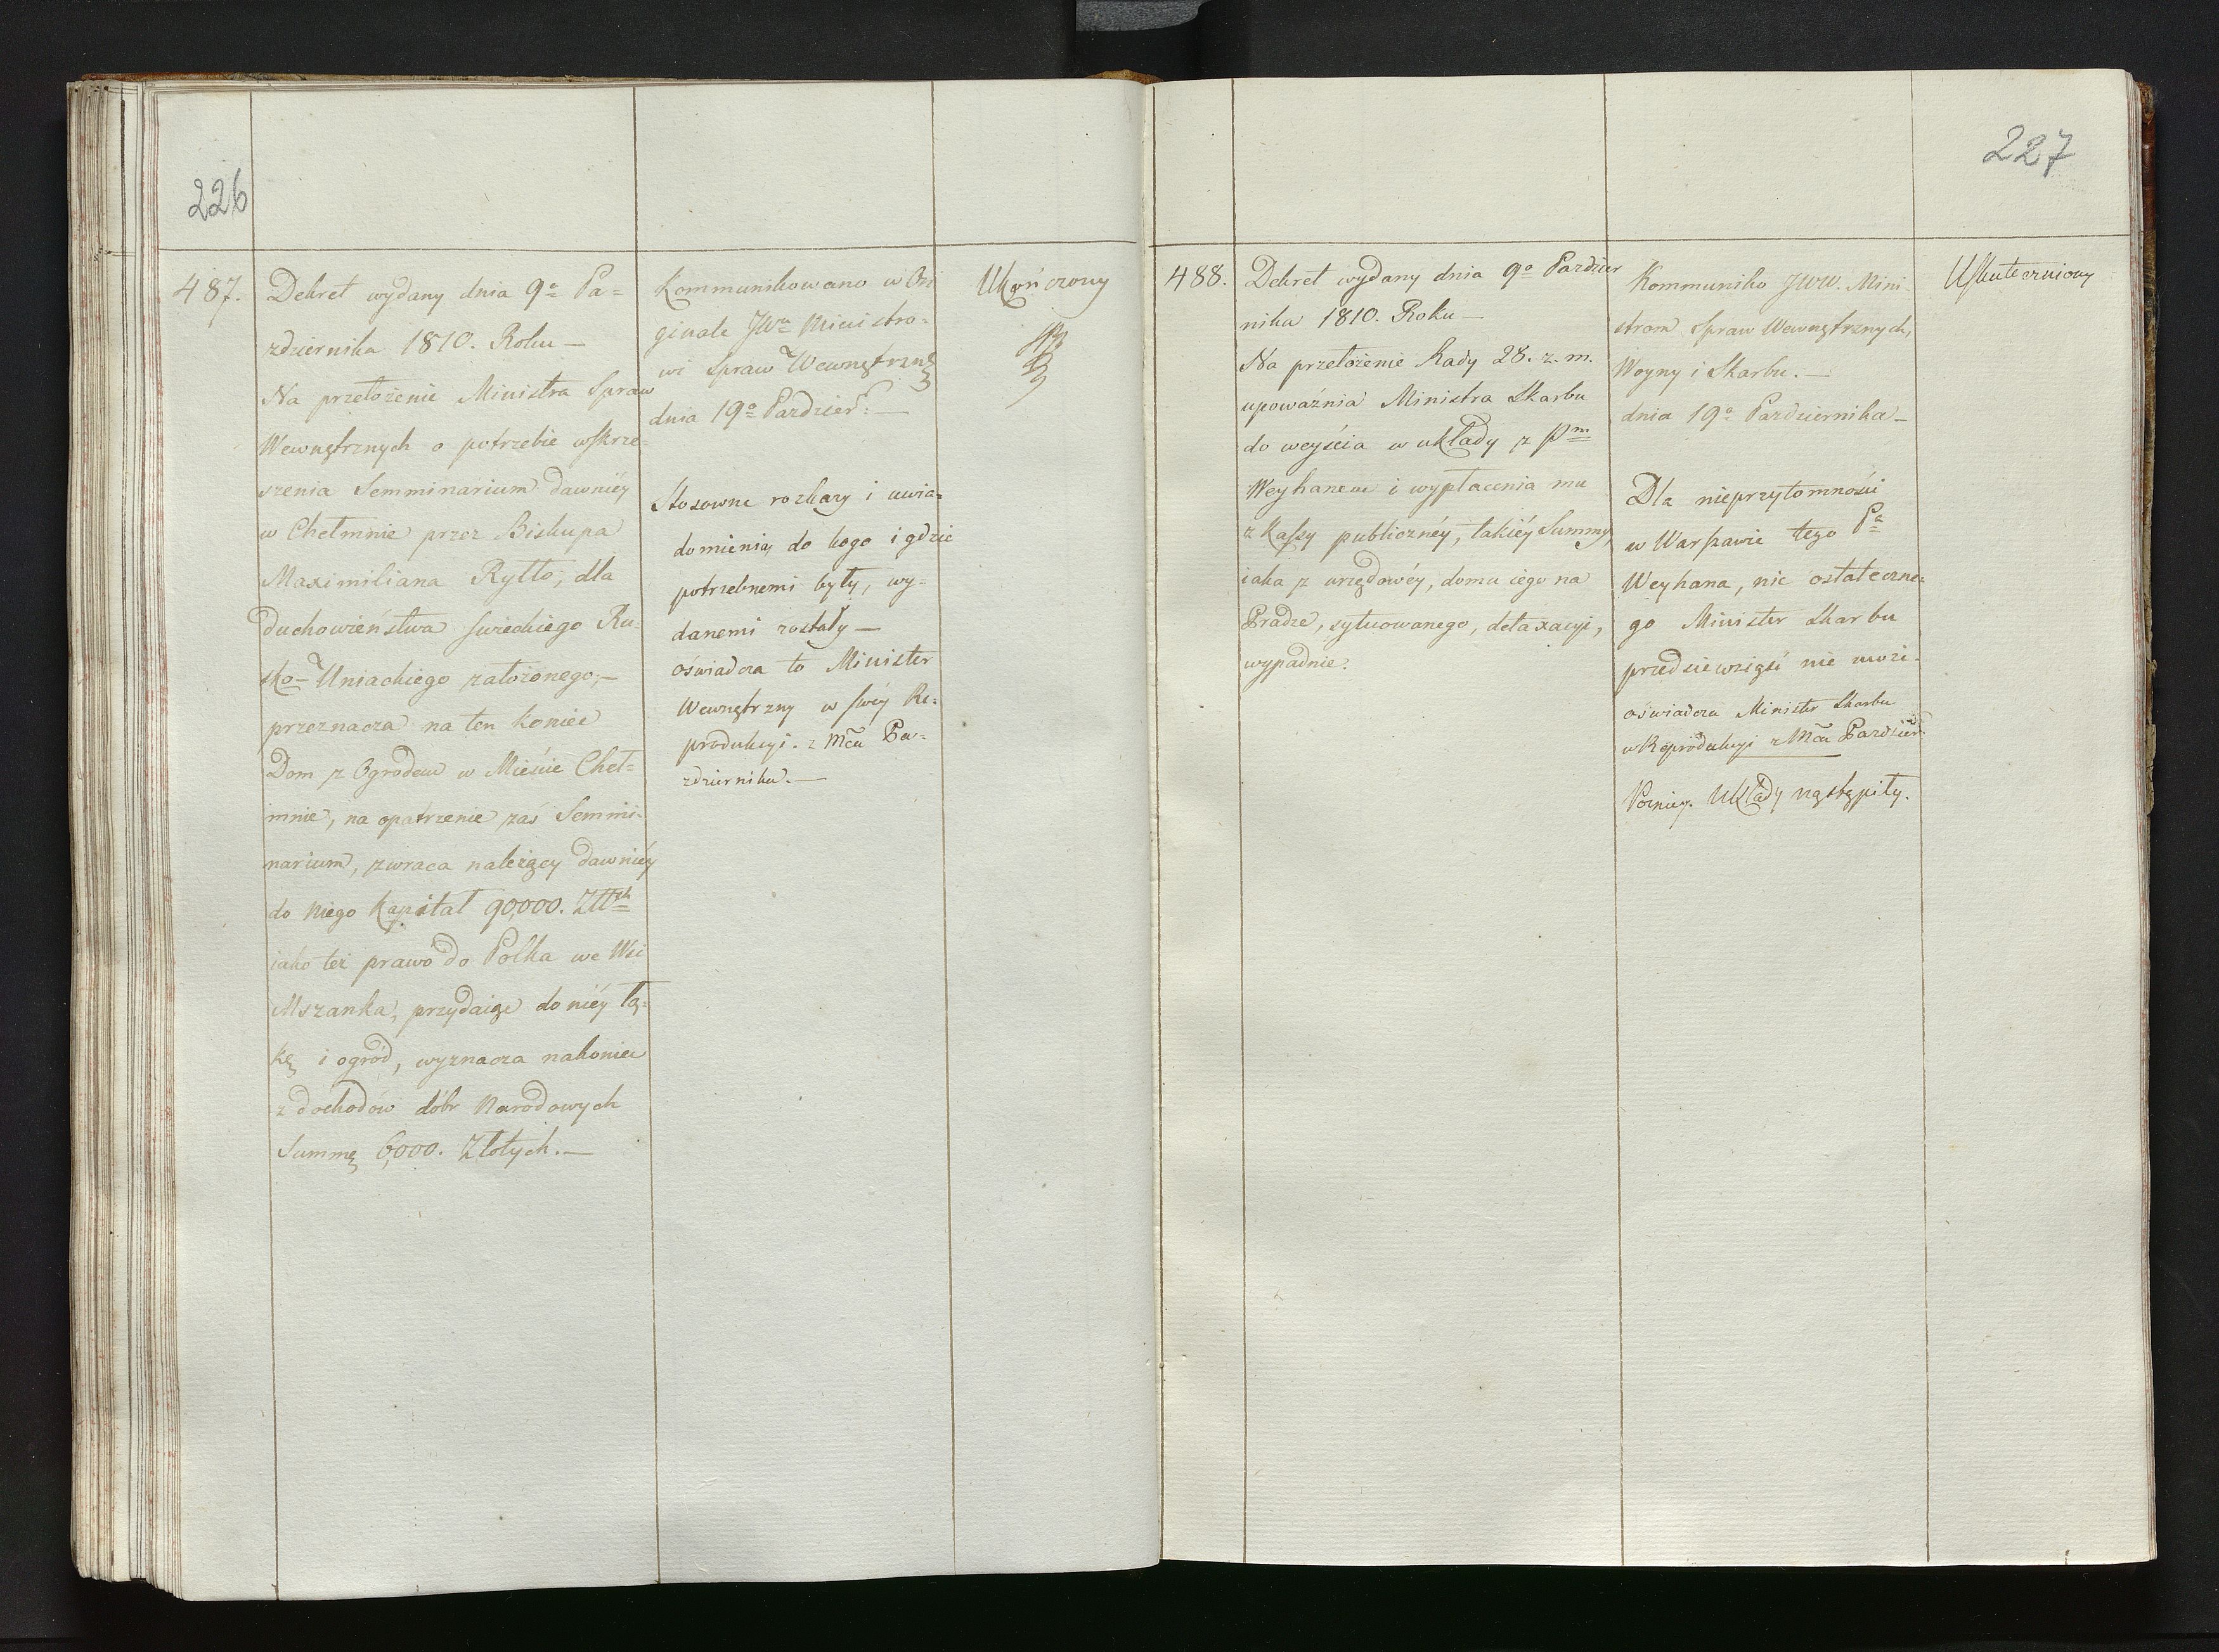 226
487.
Dekret wydany dnia 9º Pa=
zdziernika 1810. Roku —
Na przełożenie Ministra Spraw
Wewnętrznych o potrzebie wskrze=
szenia Semminarium dawniéy
w Chełmnie przez Biskupa
Maximiliana Ryłło, dla
duchowieństwa swieckiego Ru=
sko-Uniackiego założonego; —
przeznacza na ten koniec
Dom z Ogrodem w Mieście Cheł=
mnie, na opatrzenie zaś Semmi=
narium, zwraca należący dawniéy
do niego Kapitał 90,000. Złłch
iako też prawo do Polka we Wsi
Mszanka, przydaiąc do niéy łą=
kę i ogród, wyznacza nakoniec
z dochodów dóbr Narodowych
Summę 6,000. Złotych. —
Kommunikowano w Ori
ginale JWu Ministro=
wi Spraw Wewnętrzn
dnia 19º Pazdzier: —
Stosowne rozkazy i uwia=
domienia, do kogo i gdzie
potrzebnemi były, wy=
danemi zostały —
oświadcza to Minister
Wewnętrzny w swéy Re=
produkcyi. z Mca Pa=
zdziernika. —
Ukończony
227
488.
Dekret wydany dnia 9º Pazdzier
nika 1810. Roku —
Na przełożenie Rady 28. z. m.
upoważnia Ministra Skarbu
do weyścia w układy z Pm
Weyhanem i wypłacenia mu
z Kassy publicznéy, takiéy Summy,
iaka z urzędowéy, domu iego na
Pradze, sytuowanego, detaxacyi,
wypadnie.
Kommuniko JWW. Mini=
strom Spraw Wewnętrznych,
Woyny i Skarbu. —
dnia 19º Pazdziernika —
Dla nieprzytomności
w Warszawie tego Pa
Weyhana, nic ostateczne=
go Minister Skarbu
przedsiewziąść nie może.
oświadcza Minister Skarbu
w Reprodukcyi z Mca Pazdzier:
Pozniey. Układy nąstąpiły.
Uskuteczniony